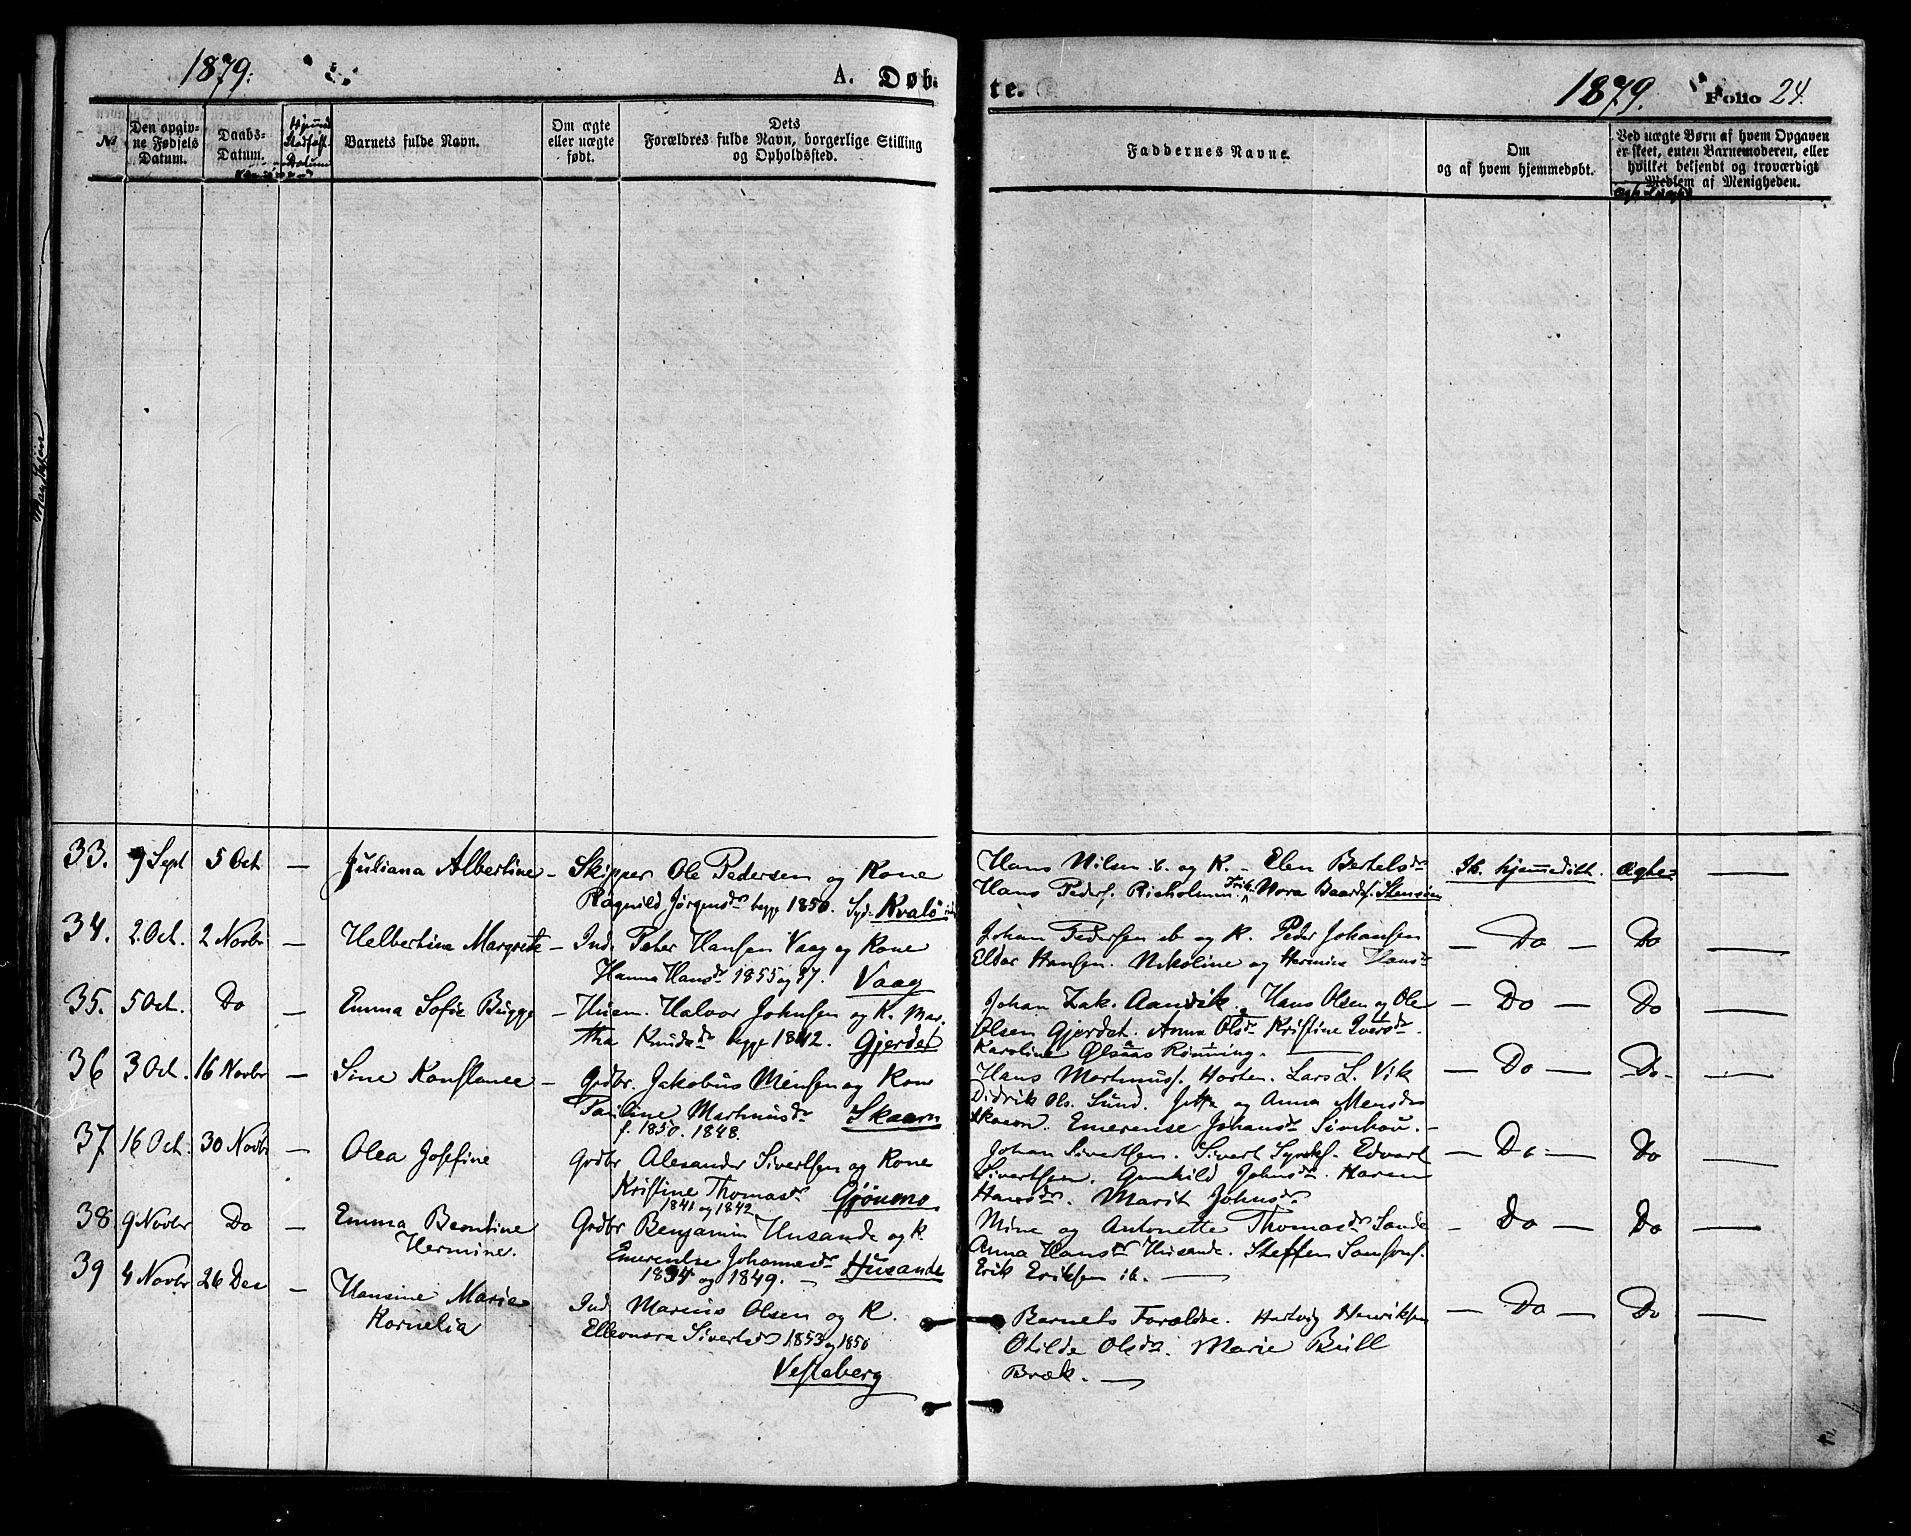 1879.
A. Døb-
te.
1879.
Folio 24.
№
Den opgiv-
ne Fødsels
Datum.
Daabs-
Datum.
Barnets fulde Navn.
Om ægte
eller uægte
født.
Dets
Forældres fulde Navn, borgerlige Stilling
og Opholdssted.
Faddernes Navne.
Om
og af hvem hjemmedøbt.
Ved uægte Børn af hvem Opgaven
er skeet, enten Barnemoderen, eller
hvilket bekjendt og troværdigt
Medlem af Menigheden.
33. 9 Sept 5 Oct — Juliana Albertine — Skipper Ole Pedersen og Kone
Ragnild Jørgensdr begge 1850. Syd-Kvalö
Hans Nilsen ib. og K. — Elen Bertelsdr
Hans Peders. Risholmen Nora Baards. Stensöen
Ik. hjemmedöbt. Ægte —
34. 2 Oct. 2 Novbr — Helbertina Margrete — Ind. Peter Hansen Vaag og Kone
Hanna Hansdr 1855 og 37. Vaag
Johan Pedersen ib og K. Peder Johansen
Eldar Hansen. Nikoline og Hermine Hansdr
— Do — Do —
35. 5 Oct. Do — Emma Sofie Bugge — Husm. Halvor Johnsen og K. Mar-
tha Knudsdr begge 1842. Gjerdet
Johan Zak. Aandvik. Hans Olsen og Ole
Olsen Gjerdet. Anna Olsdr Kristine Iversdr.
Karoline Olsdr Rönning. —
— Do — Do —
36 3 Oct. 16 Novbr — Sine Konstance — Grdbr. Jakobus Mensen og Kone
Pauline Martinusdr Skaarn
f. 1850. 1848.
Hans Martinuss. Horten. Lars L. Vik
Didrik Ols. Sund. Jetta og Anna Mensdr
Skaarn. Emerense Johansdr —
— Do — Do —
37 16 Oct. 30 Novbr — Olea Josefine Grdbr Alexander Sivertsen og Kone
Kristine Thomasdr Gjönnes
1841 og 1842
Johan Sivertsen. Sivert Edvart
Sivertsen. Gunhild Johnsdr. Haren
Hansdr. Marit Johnsdr.
— Do — Do
38 9 Novbr Do — Emma Berntine
Hermine.
Grdbr Benjamin Husande og K.
Emerentse Johannesdr Husande
1834 og 1849. —
Mine og Antonette Thomasdr Sande
Anna Hansdr Husande. Steffen Samsons.
Erik Eriksen ib. —
— Do — Do —
39 4 Novbr 26 Dec — Hansine Marie
Kornelia
Ind. Marius Olsen og K.
Elleonora Sivertsdr 1853 og 1850
Vestaberg
Barnets Forældre. Hartvig Henriksen
Otilde Olsdr. Marie Bull
Bræk. —
— Do — Do —